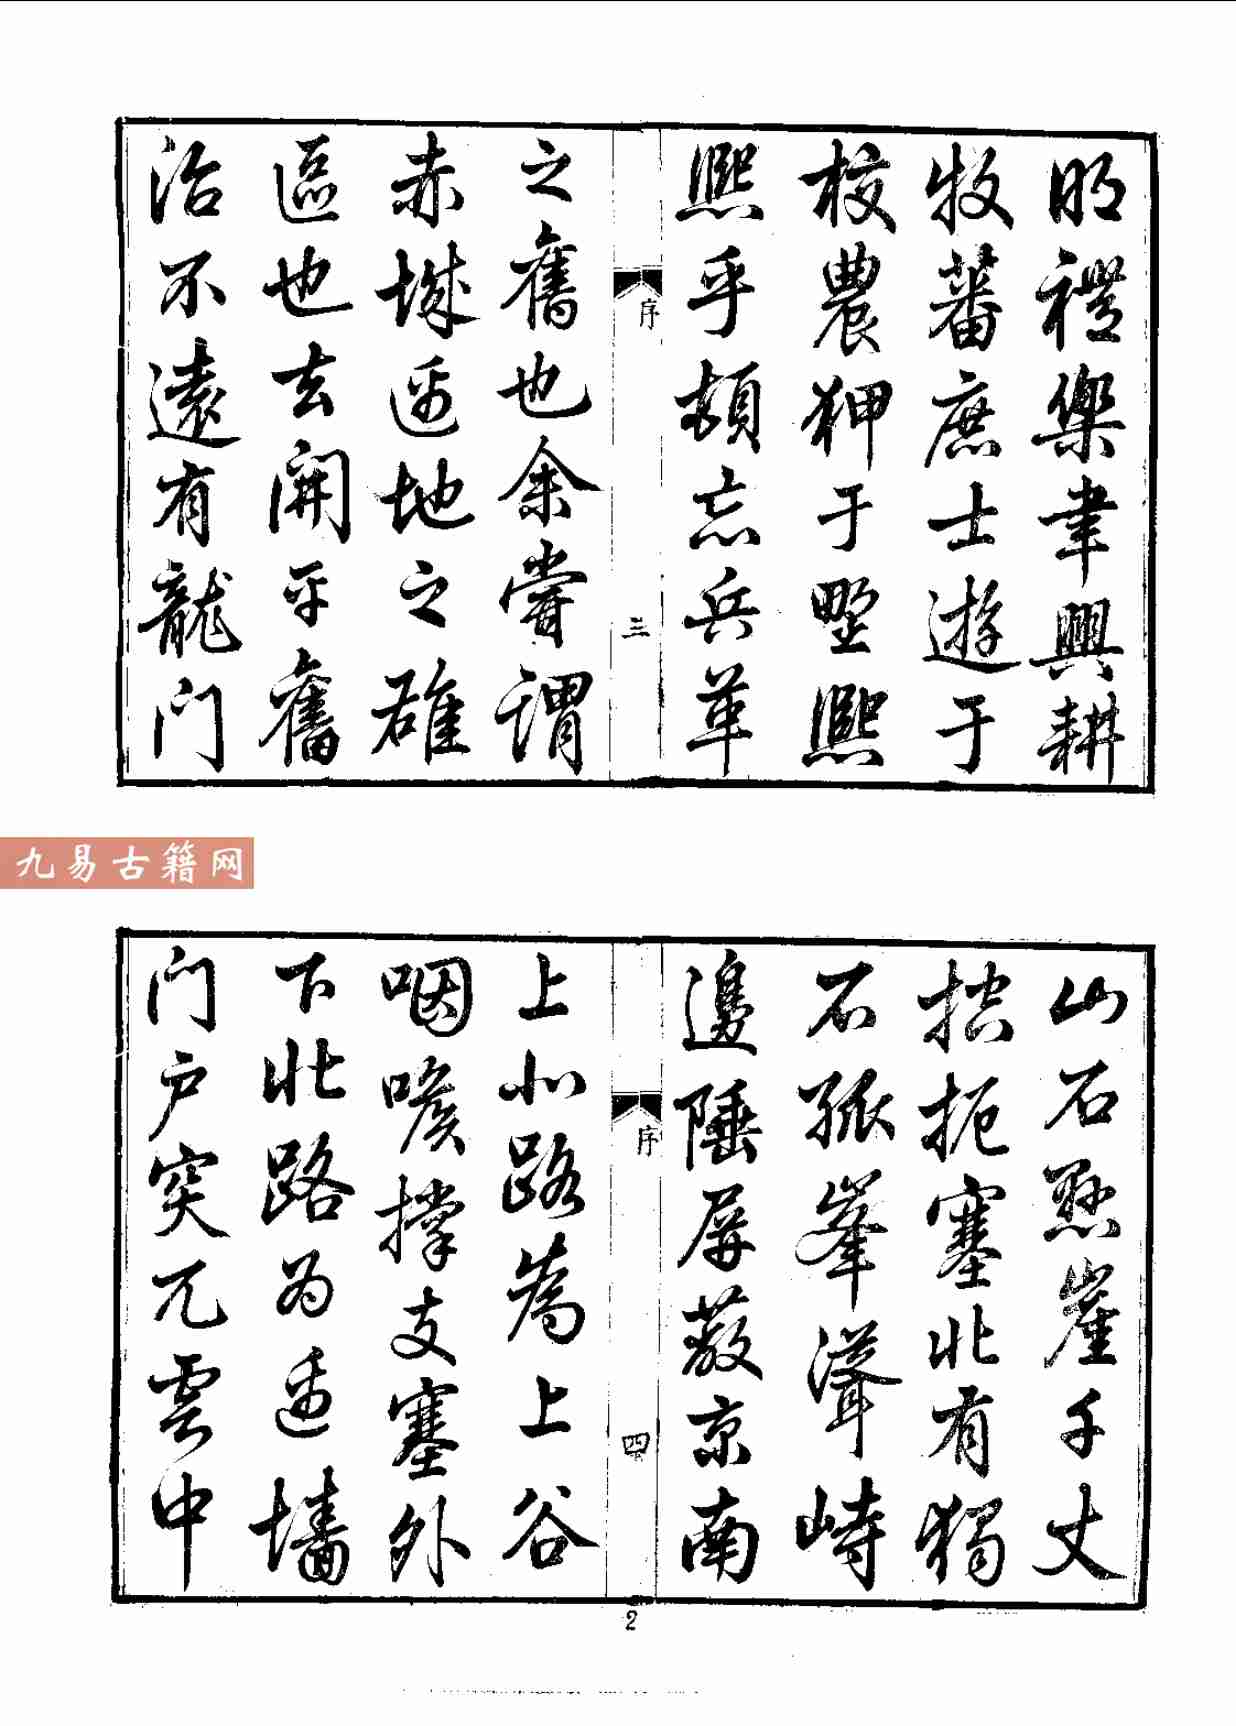 明禮樂聿興耕
牧蕃庶士遊于
校農狎于墅熙
熙乎頓忘兵革
序 三
之舊也余嘗謂
赤城邊地之雄
區也去開平舊
治不遠有龍門
九易古籍网
山石懸崖千丈
控扼塞北有獨
石孤峯聳峙
邊陲屏蔽京南
序 四
上北路為上谷
咽喉撐支塞外
下北路为邊墻
门户突兀雲中
2